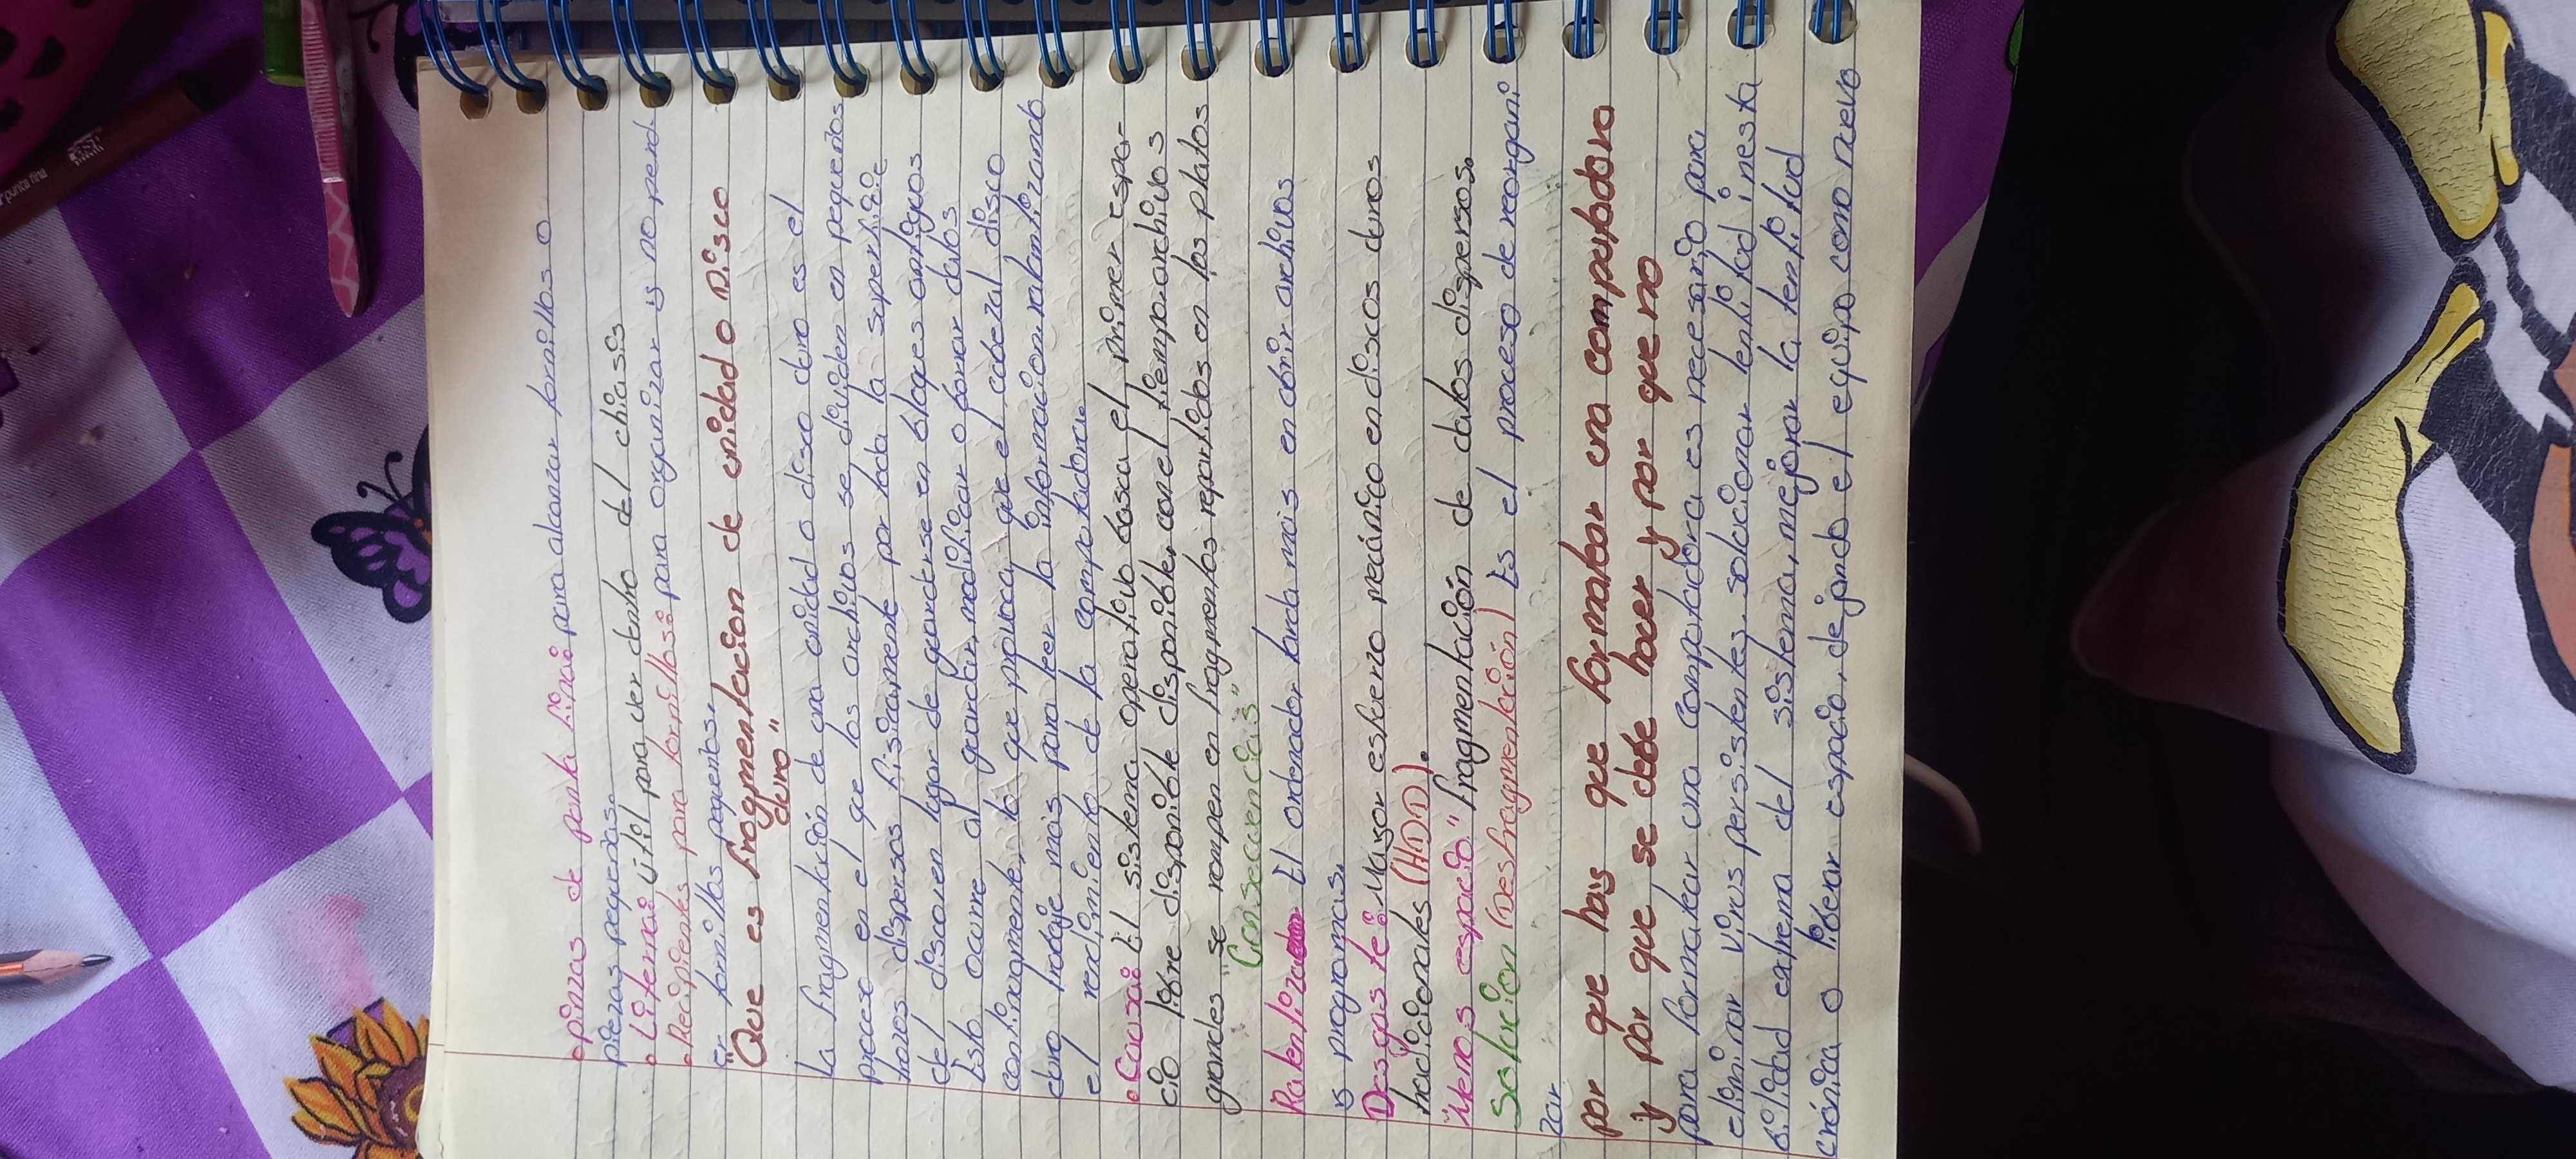 •pinzas de punta fina: para alcanzar tornillos o
piezas pequeñas.
• Liternai útil para ver dentro del chiasis
•Recipientes para tornillos: para organizar is no perd-
er tornillos pequentos.
"Que es fragmentacion de unidad o Disco
duro"
la fragmentación de una unidad o disco duro es el
procese en el que los archivos se dividen en pequeños
trozos dispersos fisicamente por toda la superficie
del disco, en lugar de guardarse en bloques contiguos
Esto ocurre al guardar, modificar o borrar datos
continuamente, lo que provoca que el cabezal disco
duro trabaje más para leer la información, ralentizando
el rendimiento de la computadora.
•Causa: El sistema operativo busca el primer espa-
cio libre disponible disponible, con el tiempo, archivos
grandes "se rompen en fragmentos repartidos en los platos
Consecuencias"
Ralentiza El ordenador tarda mais en abrir archivos
is programas.
Desgaste: Maisor esfuerzo mecánico en discos duros
tradicionales (HDD).
"Menos espacio" fragmentación de datos dispersos.
Solucion (Desfragmentación) Es el proceso de reorgani
zar
por que hais que formatear una computadora
y por que se debe hacer y por que no
para formatear una computadora es necesario para
eliminar virus persistentes, solucionar lentitud inesta
bilidad extrema del sistema, mejorar la tentitud
crónica o liberar espacio, dejando el equipo como nuevo
punta fina